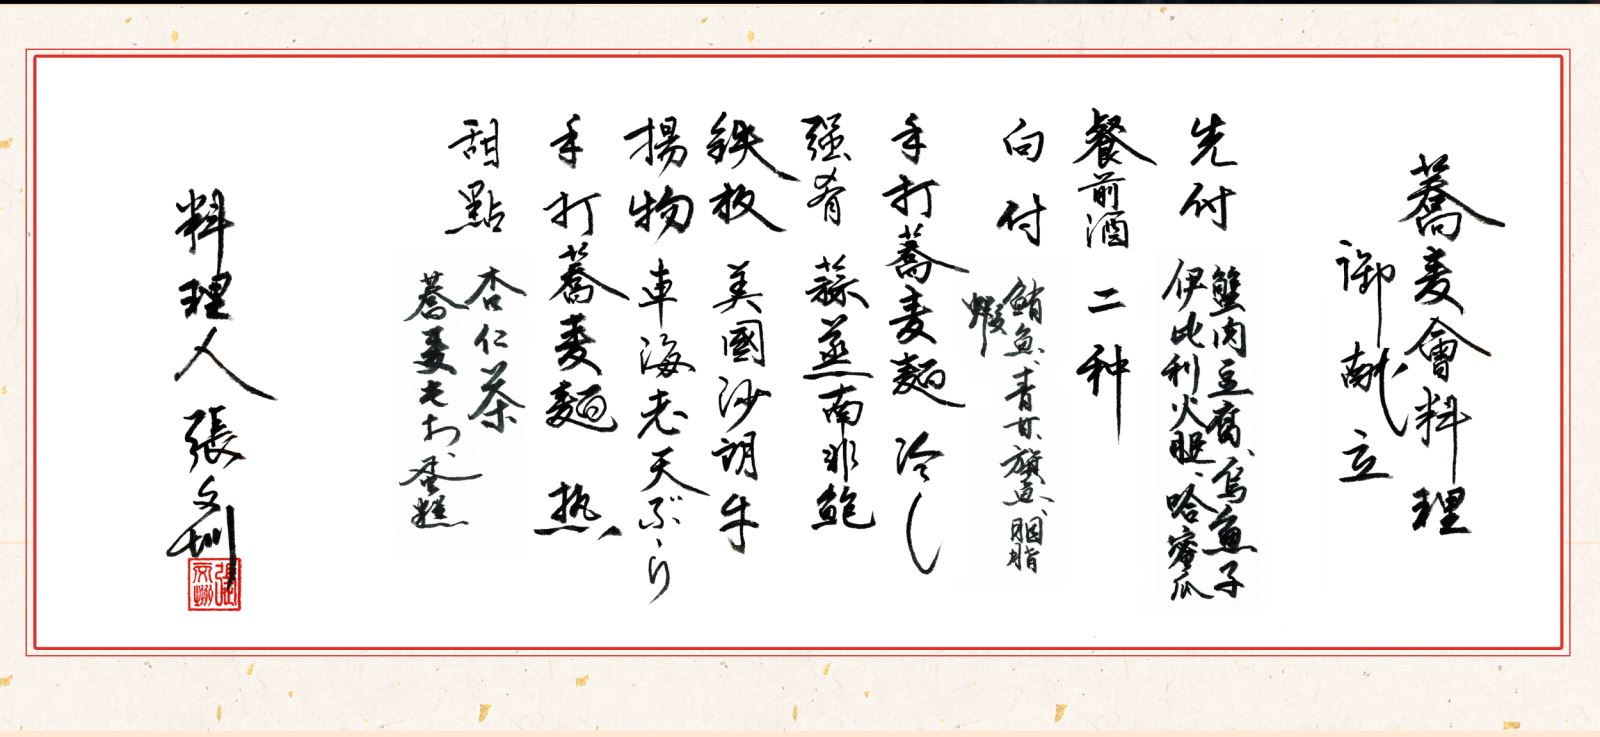 蕎麦會料理
御献立
先付
蟹肉豆腐、烏魚子
伊比利火腿、哈蜜瓜
餐前酒 二种
向付
鮪魚、青甘、旗魚、胭脂
蝦
手打蕎麦麺 冷し
强肴 蒜蒸南非鮑
鉄板 美國沙朗牛
揚物 車海老天ぷら
手打蕎麦麺 热
甜點
杏仁茶
蕎麦
蛋糕
料理人 張文